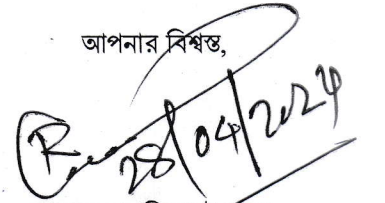 আপনার বিশ্বস্ত,
28/04/2024